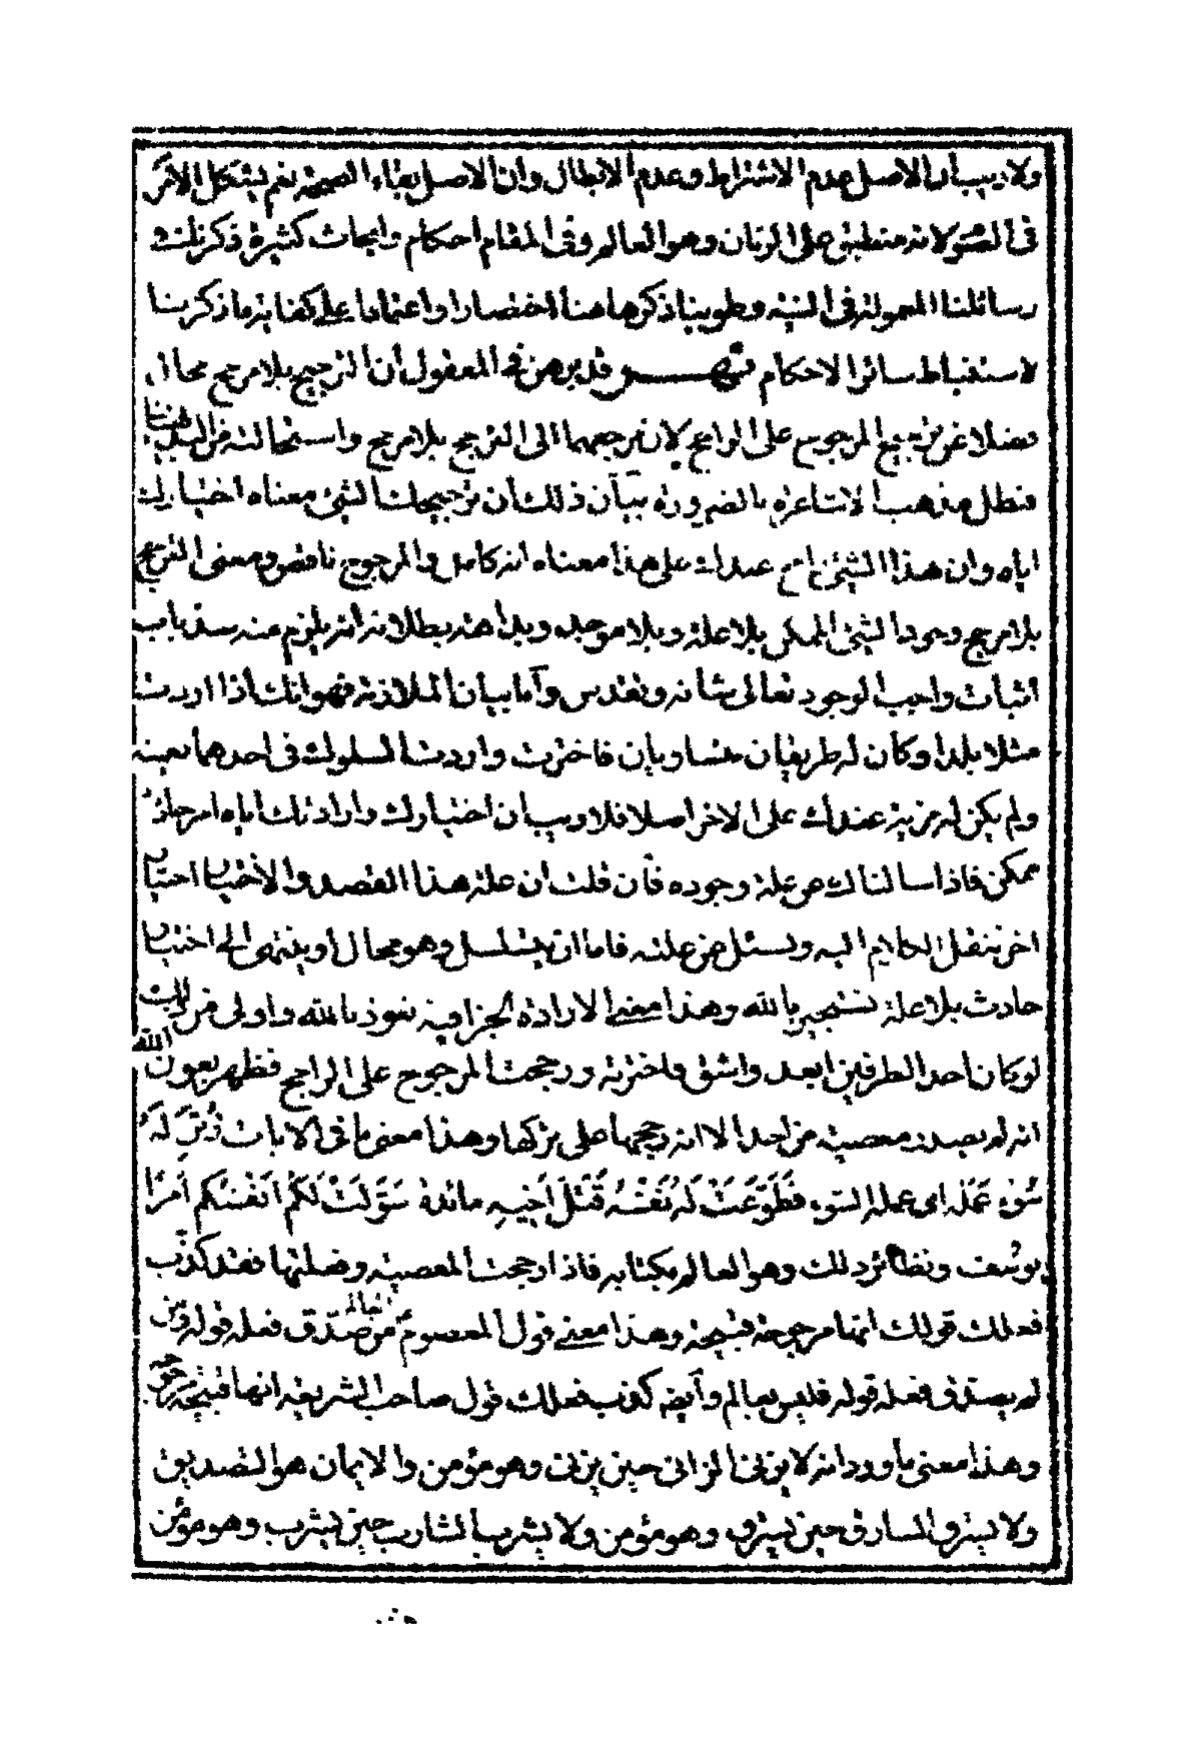 ولا ريب أن الاصل عدم الاشتراط وعدم الابطال وان الاصل بقاء الصحة نعم يشكل الامر
فى الصوم لانه منطبق على الزمان وهو العالم وفى المقام احكام وابحاث كثيرة ذكرناها فى
رسائلنا المعمولة فى النية وطوينا ذكرها هنا اختصارا واعتمادا على كفاية ما ذكرنا
لاستنباط سائر الاحكام قد برهن فى المعقول أن الترجيح بلا مرجح محال
فضلا عن ترجيح المرجوح على الراجح لان مرجعهما الى الترجح بلا مرجح واستحالته من البديهيات
فبطل مذهب الاشاعرة بالضرورة بيان ذلك أن ترجيحك الشئ معناه اختيارك
اياه وان هذا الشئ راجح عندك على هذا معناه انه كامل والمرجوح ناقص ومعنى الترجح
بلا مرجح وجود الشئ الممكن بلا علة وبلا موجد وبداهة بطلانه انه يلزم منه سد باب
اثبات واجب الوجود تعالى شانه وتقدس وأما بيان الملازمة فهو انك اذا اردت
مثلا بلدا وكان له طريقان متساويان فاخترت واردت السلوك فى احدهما بعينه
ولم يكن له مزية عندك على الاخر اصلا فلا ريب ان اختيارك وارادتك أياه امر حادث
ممكن فاذا سالناك عن علة وجوده فأن قلت ان علة هذا القصد والاختيار اختيار
اخر ننقل الكلام اليه ونسئل عن علته فاما ان يتسلسل وهو محال أو ينتهى الى اختيار
حادث بلا علة نستجير بالله وهذا معنى الارادة الجزافية نعوذ بالله واولى من ذلك
لو كان احد الطرفين ابعد واشق واخترته ورجحت المرجوح على الراجح فظهر بعون الله
انه لم يصدر معصية من احد الا انه رجحها على تركها وهذا معنى ما فى الايات زُيِّنَ لَهُ
سُوءُ عَمَلِهِ اى عمله السوء فَطَوَّعَتْ لَهُ نَفْسُهُ قَتْلَ أَخِيهِ مائدة سَوَّلَتْ لَكُمْ أَنْفُسُكُمْ أَمْرًا
يوسف ونظائر ذلك وهو العالم بكتابه فاذا رجحت المعصية وفعلتها فقد كذب
فعلك قولك انها مرجوحة قبيحة وهذا معنى قول المعصوم العالم من صدق فعله قوله ومن
لم يصدق فعله قوله فليس بعالم وأيضا كذب فعلك قول صاحب الشريعة انها قبيحة مرجوحة
وهذا معنى ما ورد انه لا يزنى الزانى حين يزنى وهو مؤمن والايمان هو التصديق
ولا يسرق السارق حين يسرق وهو مؤمن ولا يشرب الشارب حين يشرب وهو مؤمن